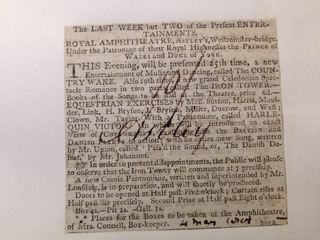 The LAST WEEK but TWO of the Present ENTER-
TAINMENTS.
ROYAL AMPHITHEATRE, ASTLEY's, Westminster-bridge.
Under the Patronage of their Royal Highnesses the PRINCE of
WALES and DUKE of YORK.
THIS Evening, will be presented, 25th time, a new
Entertainment of Music and Dancing, called The COUN-
TRY WAKE. Also 10th time, a new grand Caledonian Spec-
tacle Romance in two parts, called The IRON TOWER.
Books of the Songs to be had at the Theatre, price 6d.
EQUESTRIAN EXERCISES by Mess. Sutton, Harris, Moul-
der, Link, H. Bryson, J. Bryson, Miller, Ducrow, and Well
Clown, Mr. Taylor. With a Pantomime, called HARLE-
QUIN VICTOR. In which will be introduced an exact
View of Copenhagen, the BRITISH and
DANISH FLEETS in action; with an entire new Song, written
by Mr. Upton, called "Pass it the Sound, or, The Danish De-
feat," by Mr. Johannot.
In order to prevent disappointments, the Public will please
to observe that the Iron Tower will commence at 7 precisely.
A new Comic Pantomime, written and superintended by Mr.
Lonsdale, is in preparation, and will shortly be produced.
Doors to be opened at Half past Five o'clock; Curtain rises at
Half past Six precisely. Second Price at Half past Eight o'clock.
Boxes 4s.—Pit 2s.—Gall. 1s.
Places for the Boxes to be taken at the Amphitheatre,
of Mrs. Connell, Box-keeper.